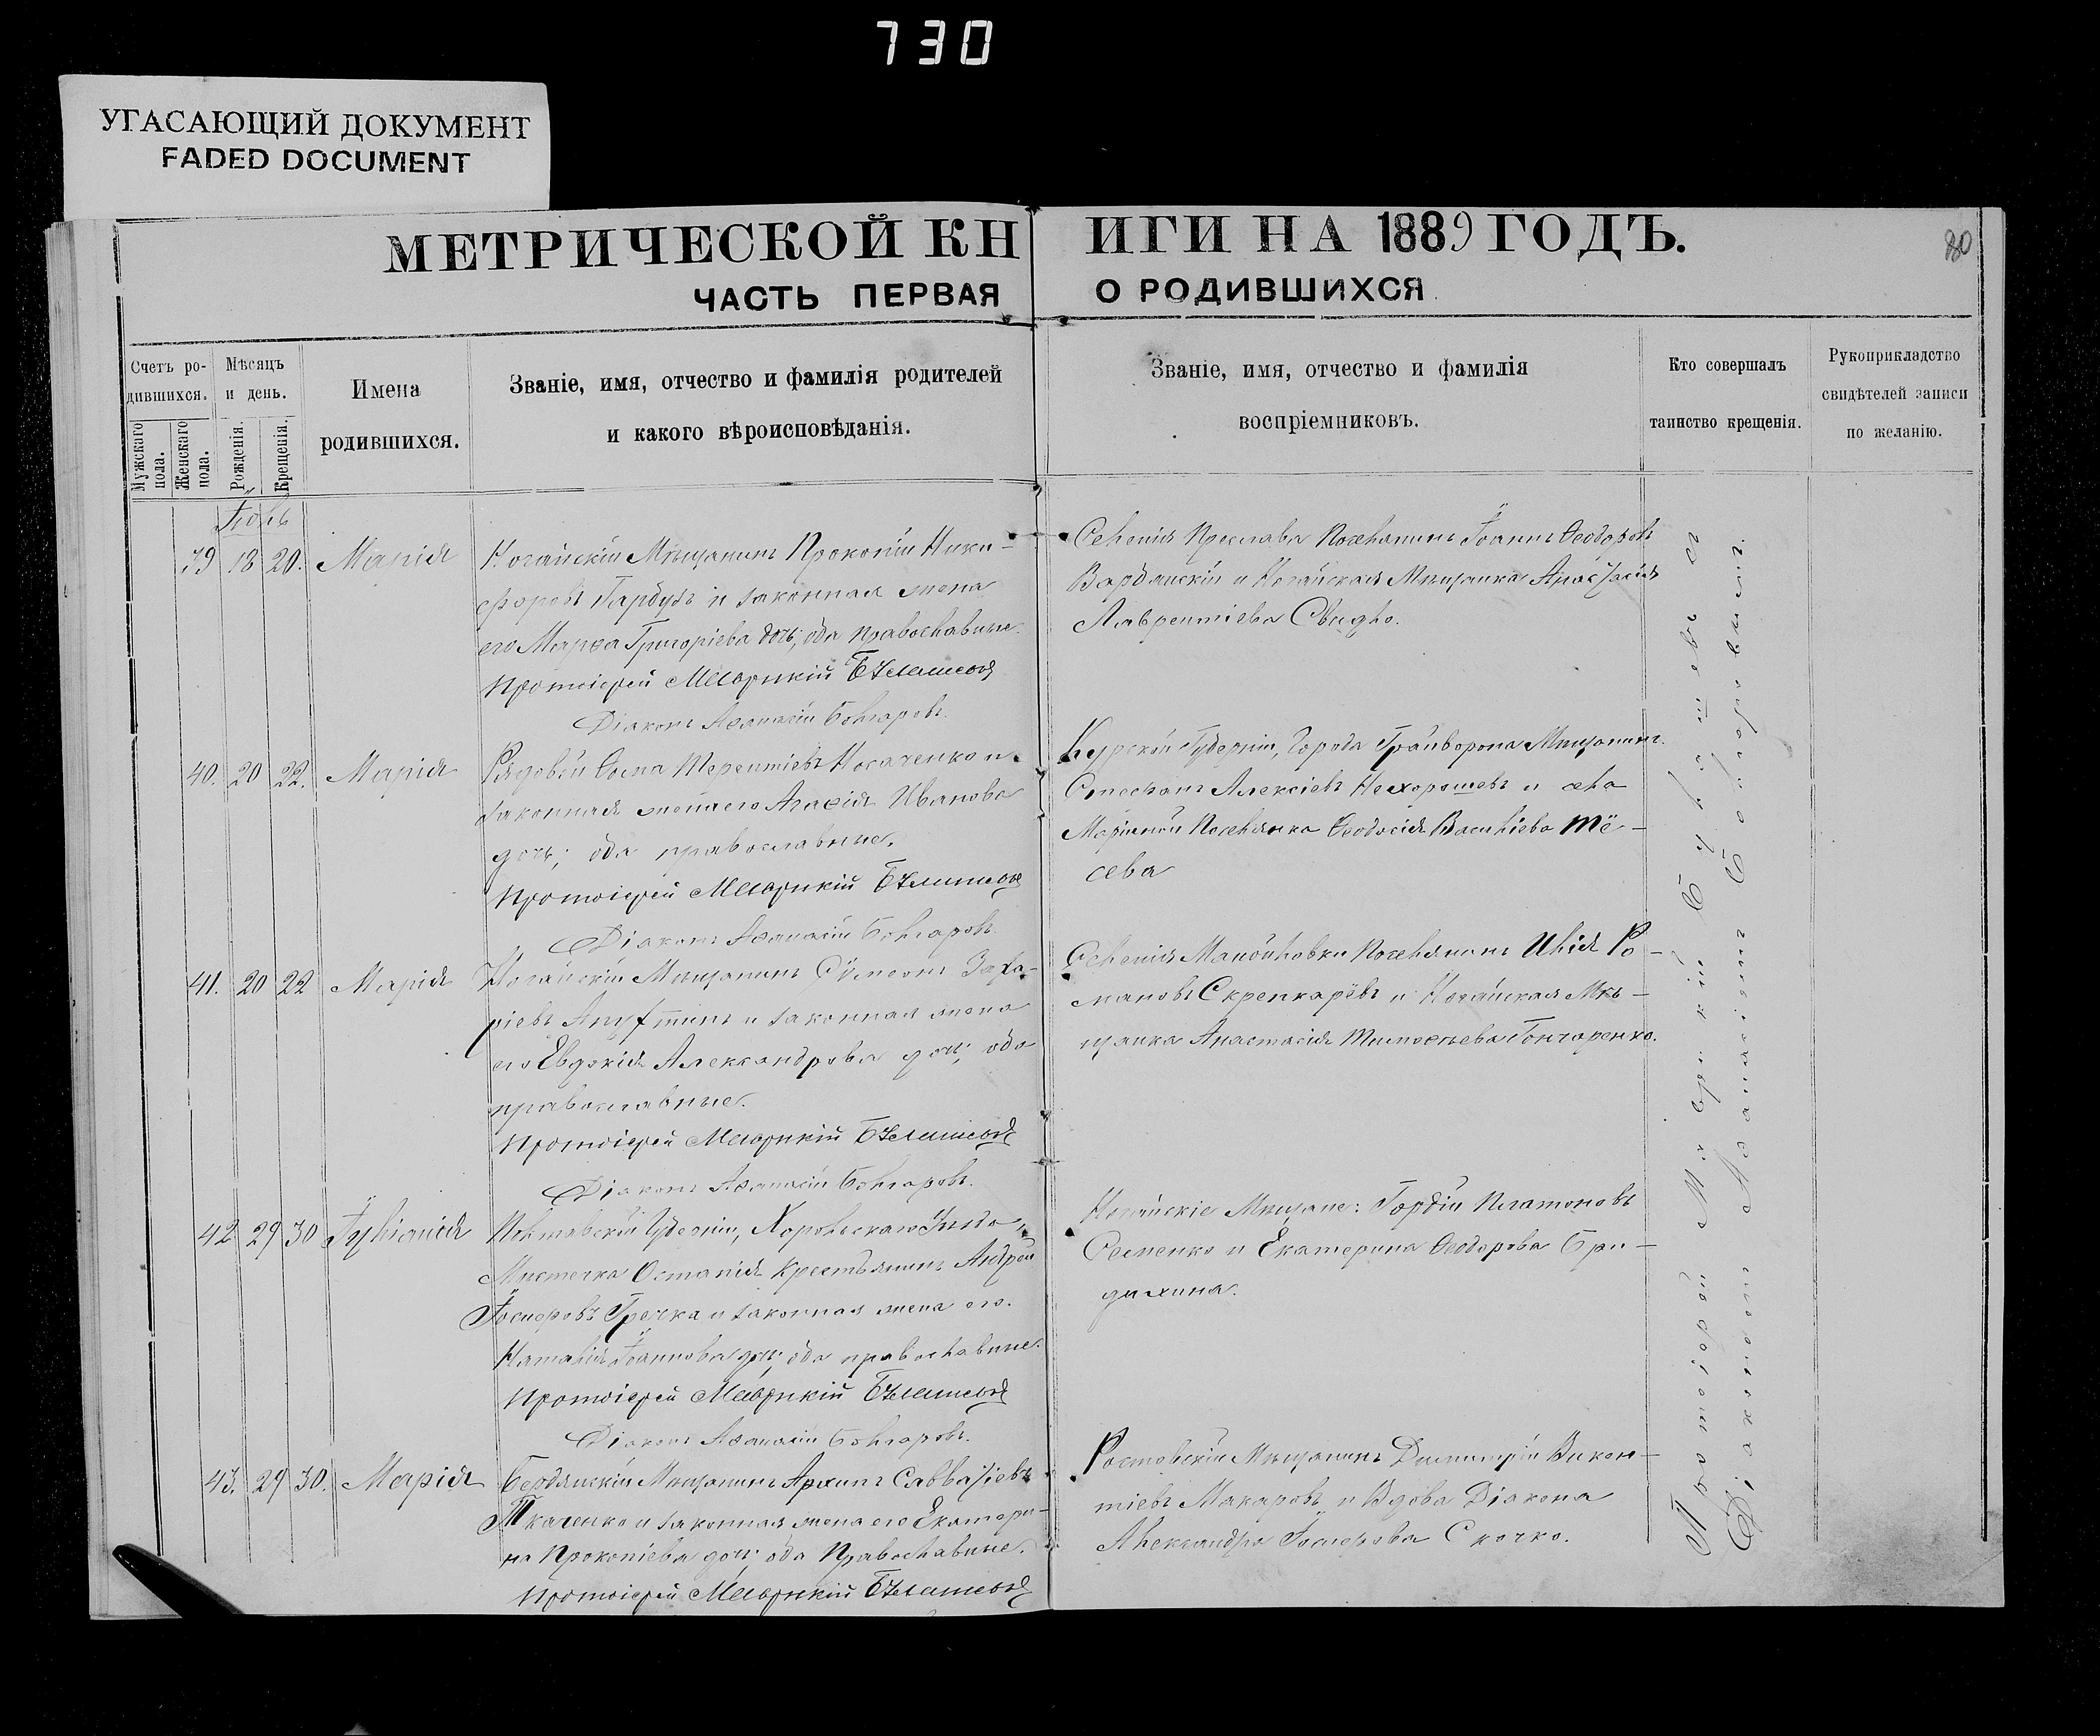 730
УГАСАЮЩИЙ ДОКУМЕНТ
FADED DOCUMENT
МЕТРИЧЕСКОЙ КНИГИ НА 1889 ГОДЪ.
80
ЧАСТЬ ПЕРВАЯ О РОДИВШИХСЯ
Счетъ родившихся.
Мужскаго пола.
Женскаго пола.
Мѣсяцъ и день.
Рожденія.
Крещенія.
Имена родившихся.
Званіе, имя, отчество и фамилія родителей
и какого вѣроисповѣданія.
Званіе, имя, отчество и фамилія
воспріемниковъ.
Кто совершалъ
таинство крещенія.
Рукоприкладство
свидѣтелей записи
по желанію.
39 18 20. Марія
Ногайскій Мѣщанинъ Прокопій Ники-
форовъ Гарбузъ и законная жена
его Марѳа Григоріева дочь, оба православные.
Протоіерей Маврикій
Діаконъ Аѳанасій Болгаровъ.
Селенія Преслава Поселянинъ Іоаннъ Ѳеодоровъ
Вардайскій и Ногайская Мѣщанка Анастасія
Лаврентіева
40. 20 22. Марія
Рядовой Ѳома Терентіевъ Носаченко и
законная жена его Агаѳія Иванова
дочь; оба православные.
Протоіерей Маврикій
Діаконъ Аѳанасій Болгаровъ.
Курской Губерніи, Города Грайворона Мѣщанинъ
Стефанъ Алексіевъ Нехорошевъ и села
Поселянка Ѳеодосія Васильева
сева
41. 20 22 Марія
Ногайскій Мѣщанинъ Сѵмеонъ Заха-
ріевъ и законная жена
его Евдокія Александрова дочь; оба
православные.
Протоіерей Маврикій
Діаконъ Аѳанасій Болгаровъ.
Селенія Мануиловки Поселянинъ Илія Ро-
мановъ Скрепкарёвъ и Ногайская Мѣ-
щанка Анастасія Тимоѳеева Гончаренко.
42 29 30 Іуліанія
Полтавской Губерніи, Хорольскаго Уѣзда,
Мѣстечка Остапія Крестьянинъ Андрей
Іосифовъ Гречка и законная жена его
Наталія Іоаннова дочь; оба православные.
Протоіерей Маврикій
Діаконъ Аѳанасій Болгаровъ.
Ногайскіе Мѣщане: Гордій Платоновъ
Семенко и Екатерина Ѳеодорова Бри-
дихина.
43. 29 30. Марія
Бердянскій Мѣщанинъ Архипъ Савватіевъ
Ткаченко и законная жена его Екатери-
на Прокопіева дочь; оба Православные.
Протоіерей Маврикій
Ростовскій Мѣщанинъ Димитрій Викен-
тіевъ Макаровъ и Вдова Діакона
Александра Іосифова Скочко.
Протоіерей Маврикій
Діакономъ Аѳанасіемъ Болгаровымъ.